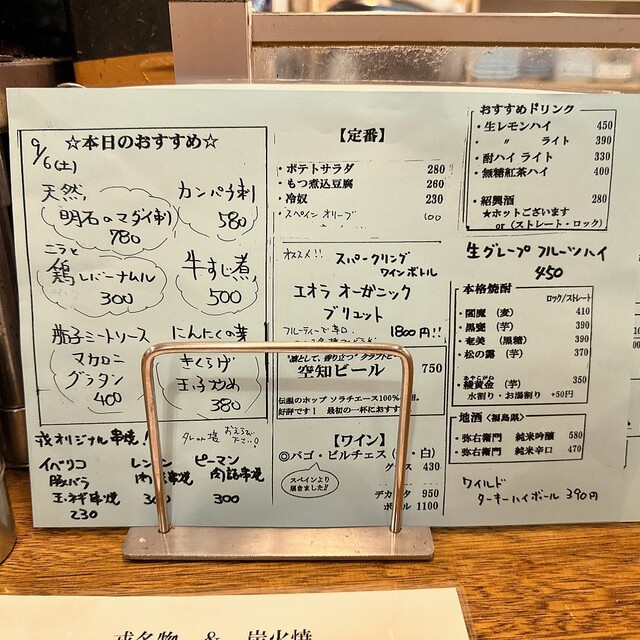 9/6(土)
☆本日のおすすめ☆
天然
明石のマダイ刺
780
カンパチ刺
580
ニラと
鶏レバーナムル
300
牛すじ煮
500
茄子ミートソース
マカロニ
グラタン
400
にんにくの芽
きくらげ
玉子炒め
380
我オリジナル串焼!
イベリコ
豚バラ
玉ネギ串焼
230
ピーマン
肉詰串焼
300
【定番】
・ポテトサラダ 280
・もつ煮込豆腐 260
・冷奴 230
・スペイン オリーブ
オススメ!!
スパークリング
ワインボトル
エオラ オーガニック
ブリュット
フルーティーで辛口
1800円!!
空知ビール 750
伝説のホップ ソラチエース100%
好評です! 最初の一杯におすす
【ワイン】
◎パゴ・ビルチェス
・白)
430
スペインより
届きました!!
デカ タ 950
ボ ル 1100
おすすめドリンク
・生レモンハイ 450
・ 〃 ライト 390
・酎ハイ ライト 330
・無糖紅茶ハイ 400
・紹興酒 280
★ホットございます
or (ストレート・ロック)
生グレープフルーツハイ
450
本格焼酎
ロック/ストレート
・閻魔 (麦) 410
・黒甕 (芋) 390
・奄美 (黒糖) 390
・松の露 (芋) 370
・綾黄金 (芋) 350
水割り・お湯割り +50円
地酒 <福島県>
・弥右衛門 純米吟醸 580
・弥右衛門 純米辛口 470
ワイルド
ターキーハイボール 390円
＆ 炭火焼